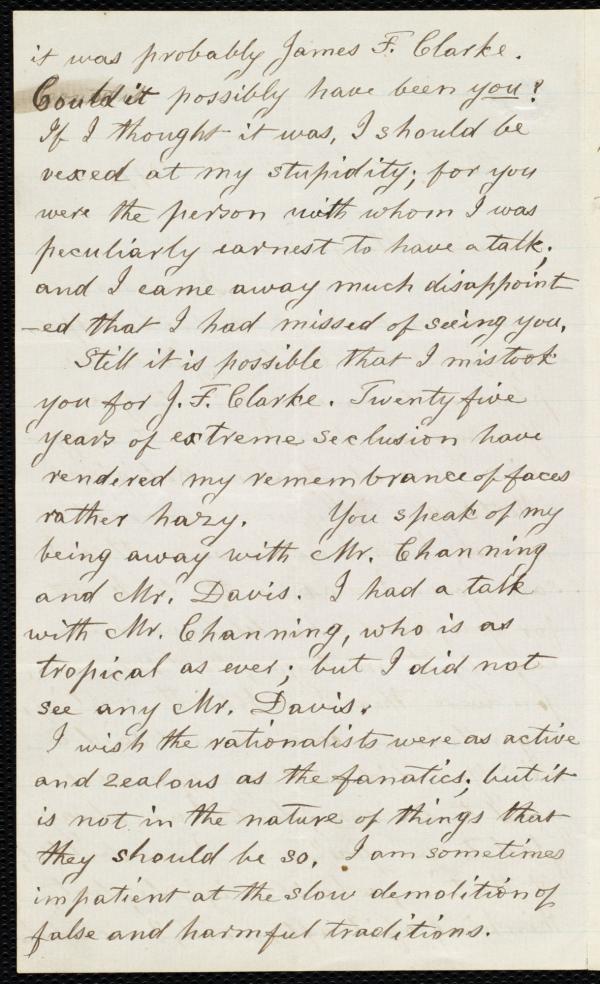 it was probably James F. Clarke.
Could it possibly have been you?
If I thought it was, I should be
vexed at my stupidity; for you
were the person with whom I was
peculiarly earnest to have a talk;
and I came away much disappoint
-ed that I had missed of seeing you.
Still it is possible that I mistook
you for J. F. Clarke. Twenty five
years of extreme seclusion have
rendered my remembrance of faces
rather hazy. You speak of my
being away with Mr. Channing
and Mr. Davis. I had a talk
with Mr. Channing, who is as
tropical as ever; but I did not
see any Mr. Davis.
I wish the rationalists were as active
and zealous as the fanatics; but it
is not in the nature of things that
they should be so. I am sometimes
impatient at the slow demolition of
false and harmful traditions.